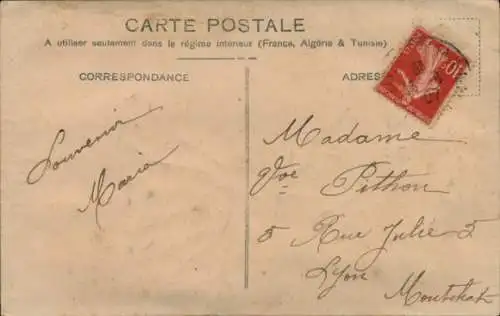 CARTE POSTALE
A utiliser seulement dans le régime intérieur (France, Algérie & Tunisie)
CORRESPONDANCE
ADRES
Souvenir
Maria
Madame
Vve Pithon
5 Rue Julie 5
Lyon
Montchat
10